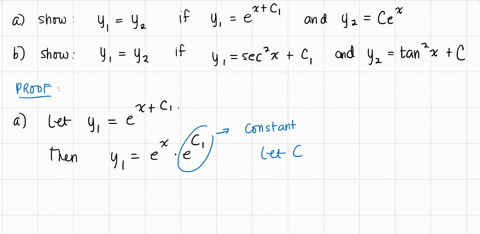 a) show: y₁ = y₂ if y₁ = e^(x+C₁) and y₂ = Ceˣ
b) show: y₁ = y₂ if y₁ = sec²x + C₁ and y₂ = tan²x + C
PROOF:
a) Let y₁ = e^(x+C₁).
Then y₁ = eˣ · e^(C₁) → constant
Let C